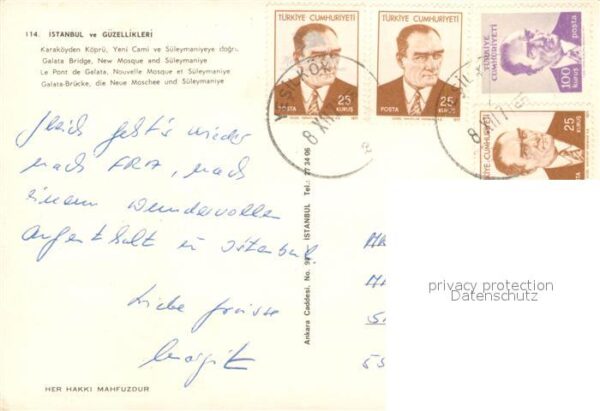 114. İSTANBUL ve GÜZELLİKLERİ
Karaköyden Köprü, Yeni Cami ve Süleymaniyeye doğru
Galata Bridge, New Mosque and Süleymaniye
Le Pont de Galata, Nouvelle Mosque et Süleymaniye
Galata-Brücke, die Neue Moschee und Süleymaniye
TÜRKİYE CUMHURİYETİ
POSTA 25 KURUŞ
TÜRKİYE CUMHURİYETİ
POSTA 25 KURUŞ
TÜRKİYE CUMHURİYETİ
100 kuruş posta
TÜRKİYE CUMHURİYETİ
25 KURUŞ
YEŞİLKÖY
8 XII
8 XII
Gleich geht's wieder
nach FRA, nach
einem wundervollen
Aufenthalt in Istanbul.
Liebe Grüsse
Margit
Ankara Caddesi, No. İSTANBUL Tel.: 27 24 06
privacy protection
Datenschutz
HER HAKKI MAHFUZDUR